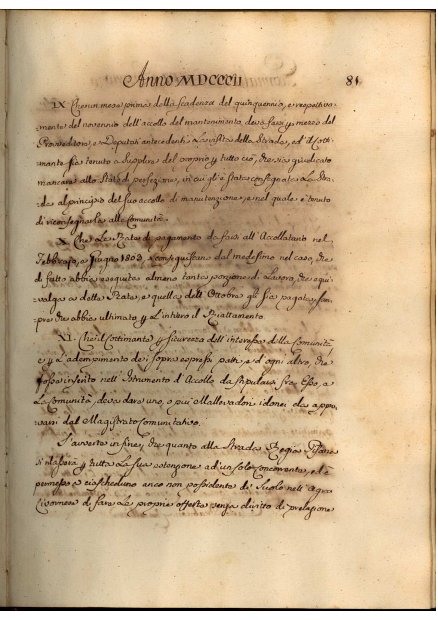 Anno MDCCCII 81
IX Che un mese prima della scadenza del quinquennio, e respettiva-
mente del novennio dell'accollo del mantenimento, deva farsi p mezzo del
Provveditore, e Deputati antecedenti La visita della Strada, ed il Cotti-
mante sia tenuto a supplire del proprio p tutto ciò, che sia giudicato
mancare allo Stato di perfezione, in cui gli è stata consegnata La Stra-
da al principio del suo accollo di manutenzione, e nel quale è tenuto
di riconsegnarla alla Comunità.
X. Che Le Rate di pagamento da farsi all'Accollatario nel
Febbrajo, e Giugno 1803 si conseguiscano dal medesimo nel caso, che
di fatto abbia eseguita almeno tanta porzione di Lavoro, che equi-
valga a dette Rate, e quella dell'Ottobre gli sia pagata sem-
pre che abbia ultimato p L'intiero il Riattamento.
XI. Che il Cottimante p sicurezza dell'interesse della Comunità
e p L'adempimento dei sopra espressi patti, e d'ogni altro, che
fosse inserito nell'Istrumento d'Accollo da stipularsi fra Esso, e
La Comunità, deva dare uno, o più Mallevadori idonei da appro-
varsi dal Magistrato Comunitativo.
S'avverte in fine, che quanto alla Strada Regia Pisana
si rilascia p tutta La sua estensione ad un solo concorrente, ed è
permesso a ciascheduno anco non possidente di Suolo nell'Agro
Livornese di fare Le proprie offerte senza diritto di prelazione